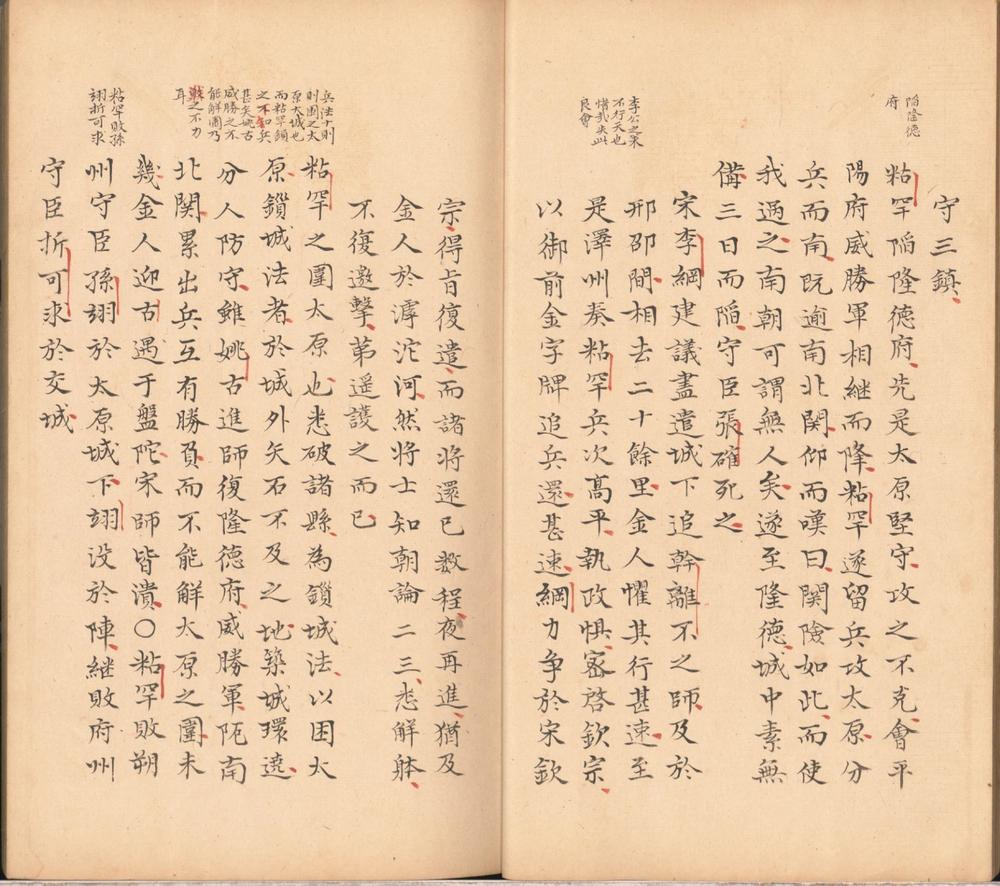 守三鎮
陷隆德
府
粘罕陷隆德府先是太原堅守攻之不克會平
陽府威勝軍相継而降粘罕遂留兵攻太原分
兵而南既逾南北関仰而嘆曰関險如此而使
我過之南朝可謂無人矣遂至隆德城中素無
備三日而陷守臣張確死之
李公之策
不行天也
惜哉失此
良會
宋李綱建議盡遣城下追幹離不之師及於
邢邵間相去二十餘里金人懼其行甚速至
是澤州奏粘罕兵次高平執政惧密啓欽宗
以御前金字牌追兵還甚速綱力争於宋欽
宗得㫖復遣而諸将還已数程夜再進猶及
金人於滹沱河然将士知朝論二三悉解躰
不復邀擊苐遥護之而已
兵法十則
則圍之太
原大城也
而粘罕鎖
之不知兵
甚矣姚古
威勝之不
能解圍乃
戰之不力
耳
粘罕之圍太原也悉破諸縣為鎖城法以困太
原鎖城法者於城外矢石不及之地築城環遶
分人防守雖姚古進師復隆德府威勝軍阨南
北関累出兵互有勝負而不能解太原之圍未
幾金人迎古遇于盤陀宋師皆潰〇粘罕敗朔
粘罕敗孫
翊折可求
州守臣孫翊於太原城下翊没於陣継敗府州
守臣折可求於交城